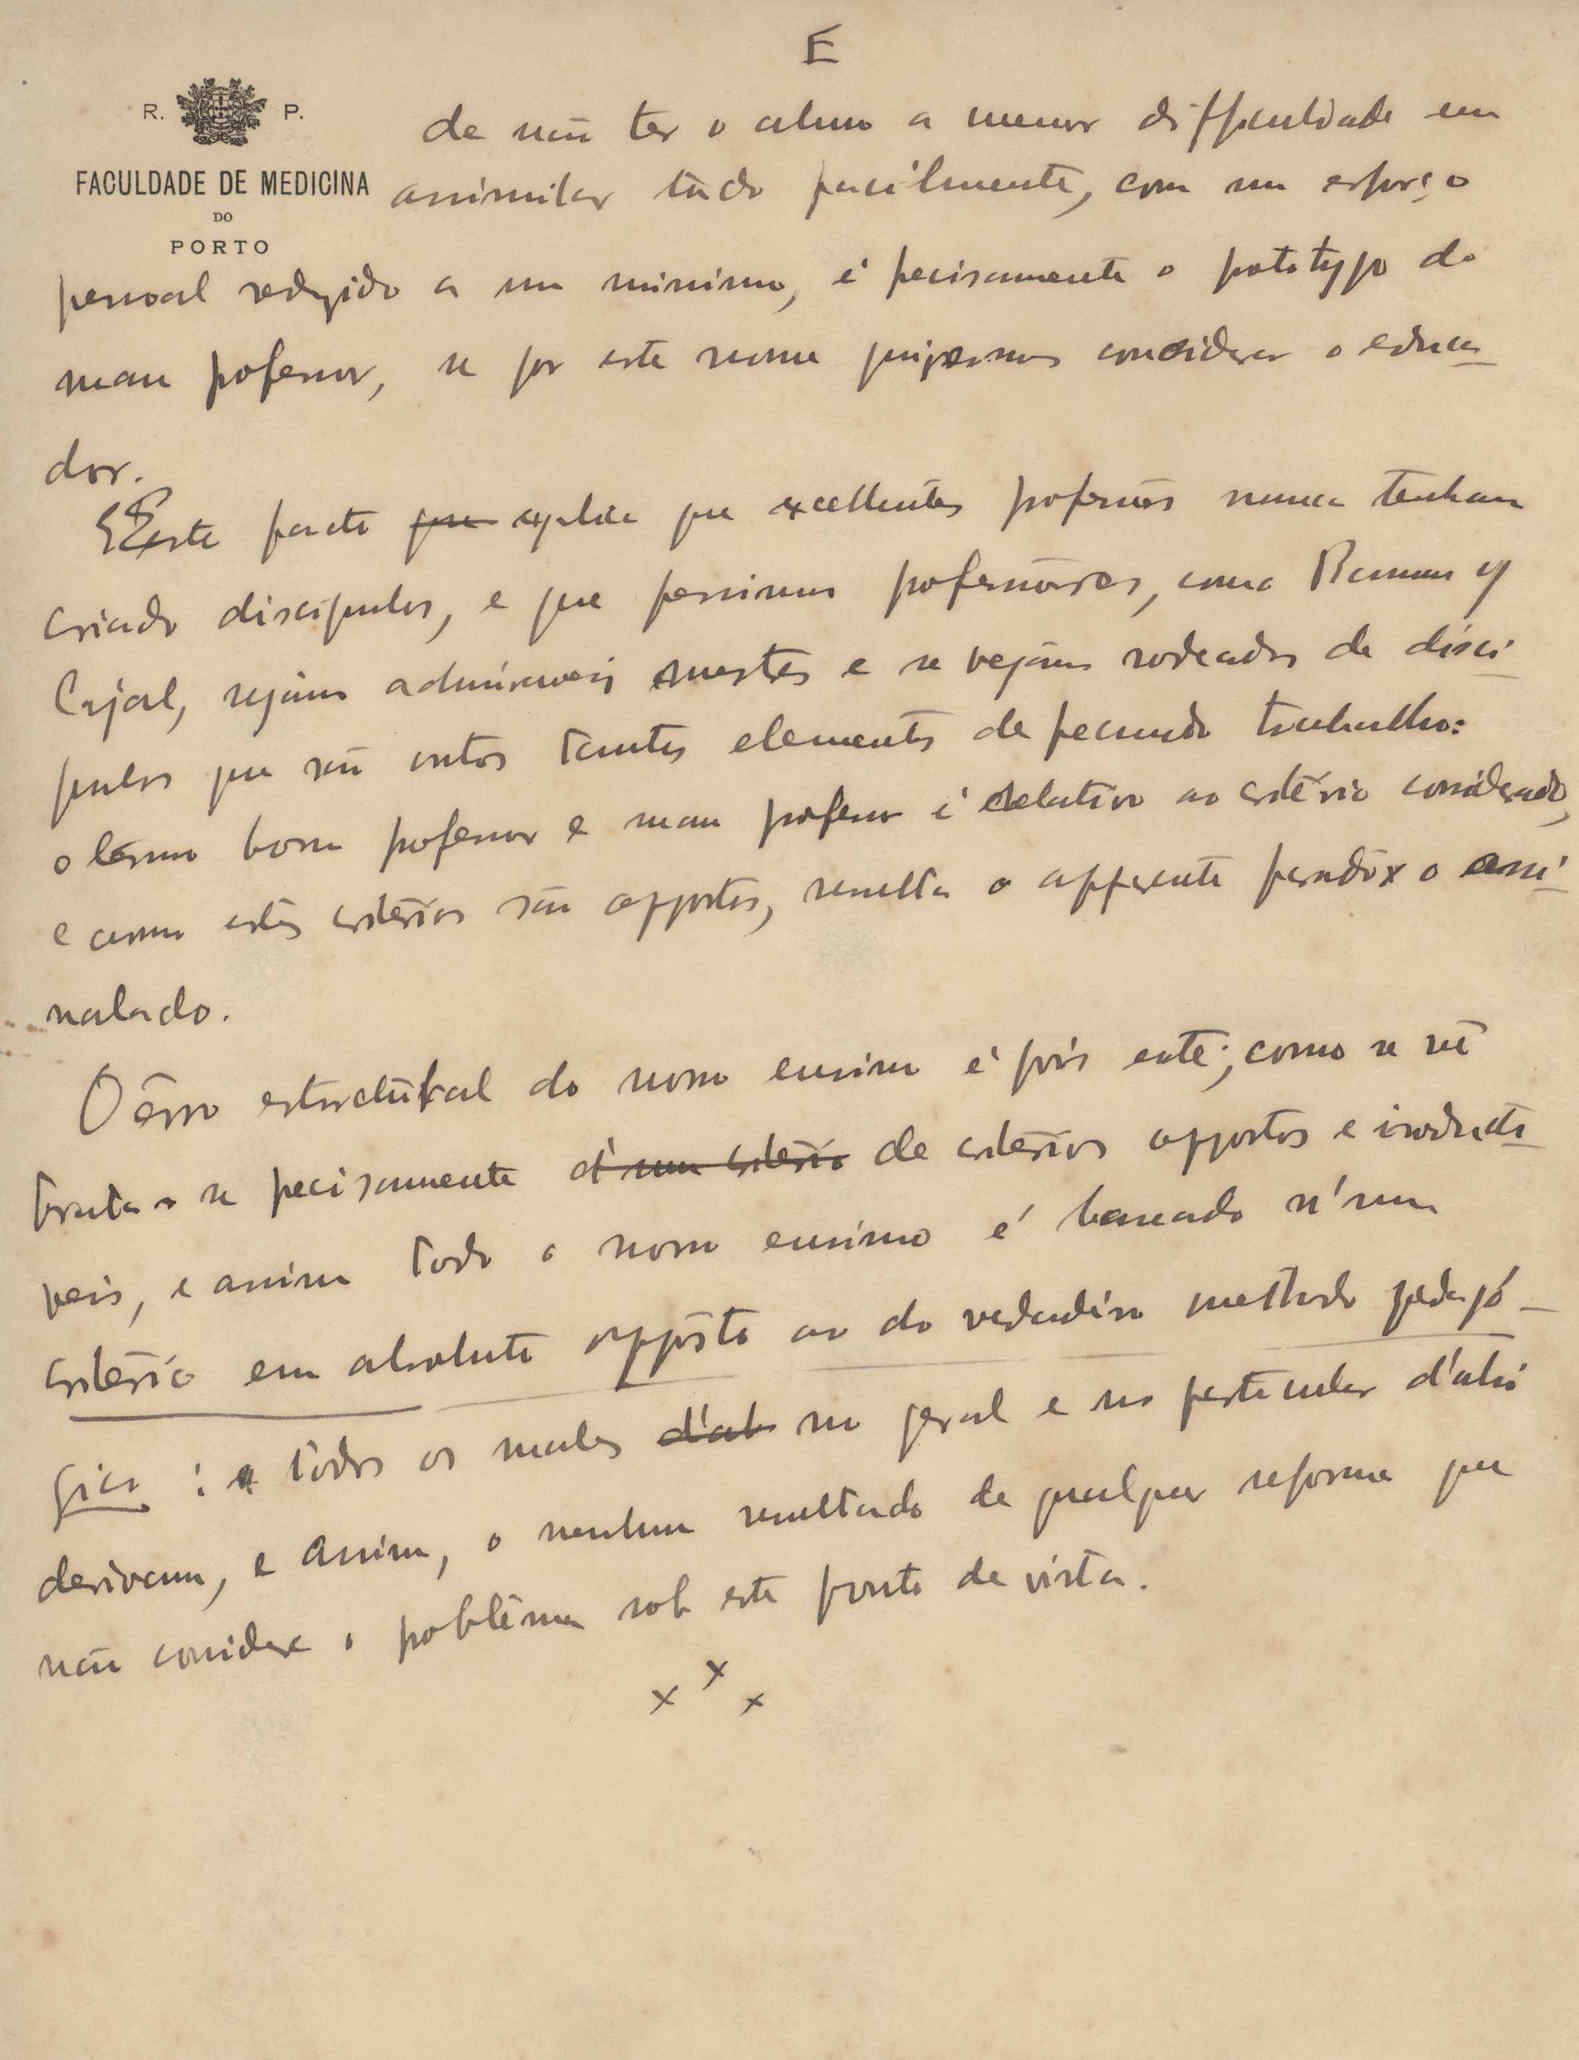 E
R. P.
FACULDADE DE MEDICINA
DO
PORTO
de não ter o aluno a menor difficuldade em
assimilar tudo facilmente, com um esforço
pessoal reduzido a um minimo, é precisamente o prototypo do
mau professor, se por este nome quizermos considerar o educa-
dor.
Este facto que explica que excellentes professores nunca tenham
criado discipulos, e que pessimos professores, como Ramon y
Cajal, sejam admiraveis mestres e se vejam rodeados de disci-
pulos que são outros tantos elementos de fecundo trabalho:
o termo bom professor e mau professor é relativo ao critério considerado,
e como estes critérios são oppostos, resulta o apparente paradoxo assi-
nalado.
O êrro estructural do nosso ensino é pois este; como se vê
trata-se precisamente d'um critério de critérios oppostos e irreducti-
veis, e assim todo o nosso ensino é baseado n'um
critério em absoluto oppôsto ao do verdadeiro methodo pedagó-
gico : todos os males d'ah no geral e no particular d'ahi
derivam, e assim, o nenhum resultado de qualquer reforma que
não considere o problêma sob este ponto de vista.
x x x